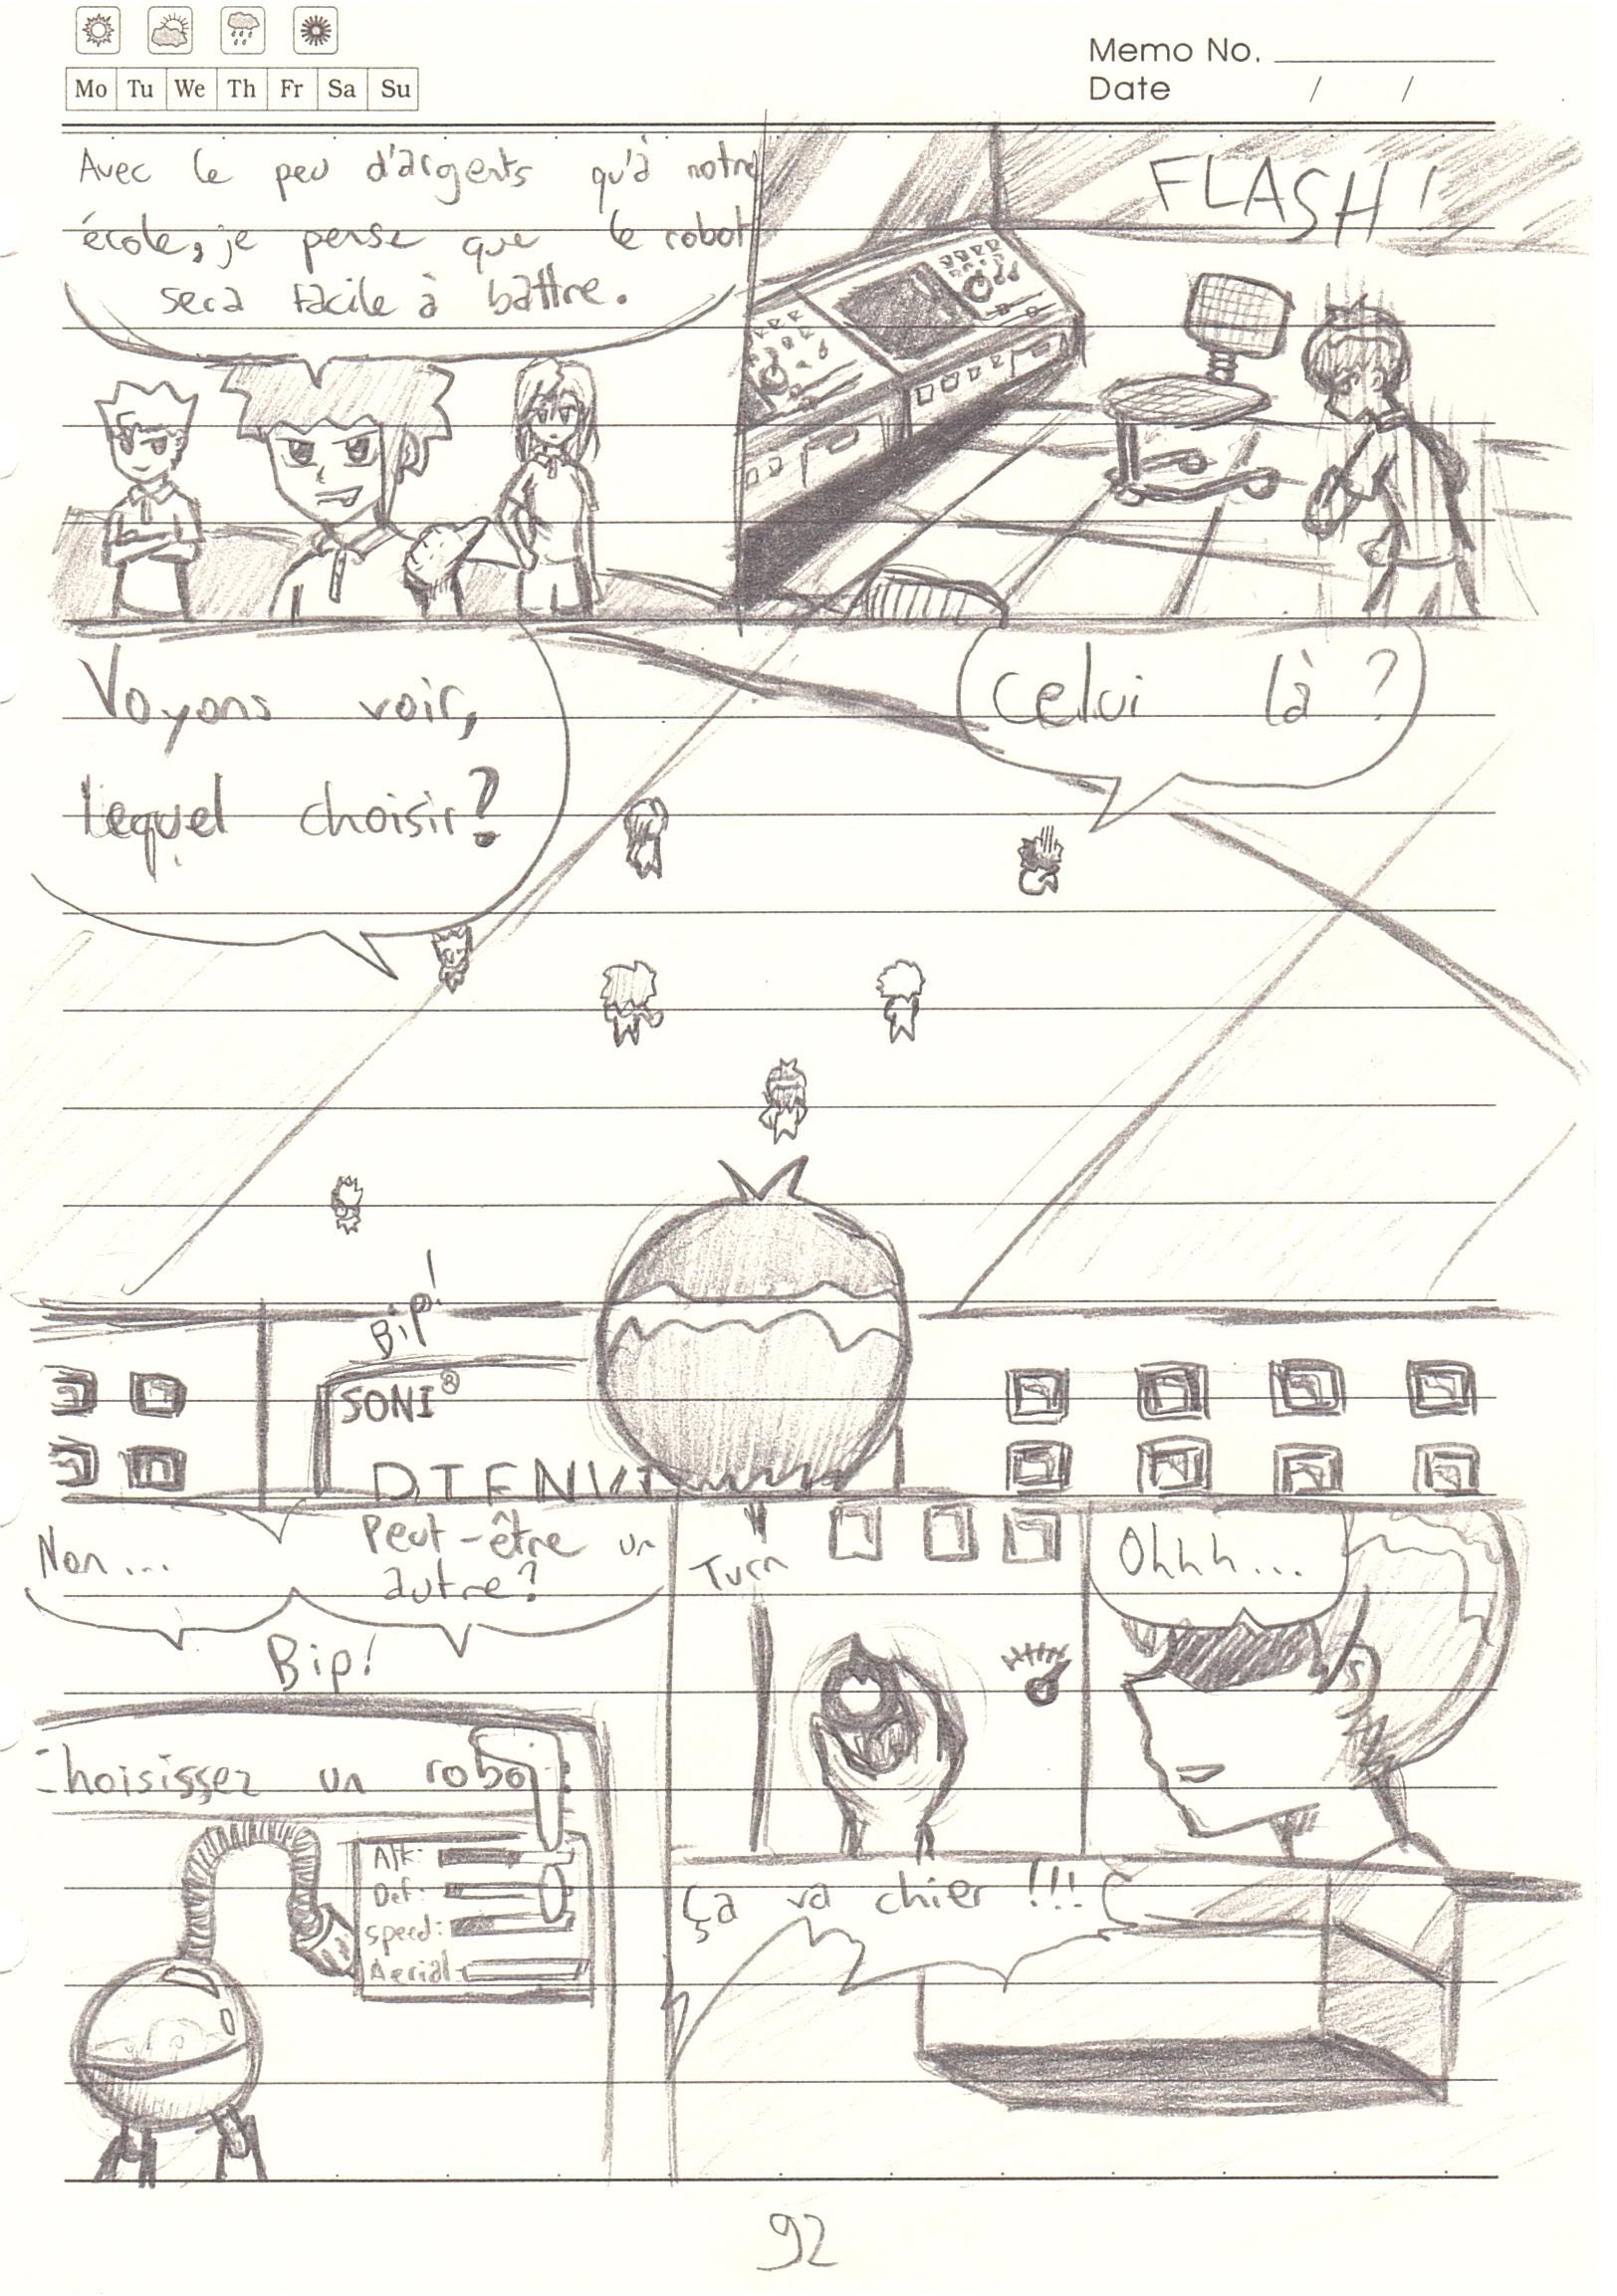 Memo No.
Mo Tu We Th Fr Sa Su
Date / /
Avec le peu d'argents qu'à notre
école, je pense que le robot
sera facile à battre.
FLASH!
Voyons voir,
lequel choisir?
Celui là?
Bip!
SONI®
BIENVE
Non...
Peut-être un
autre?
Bip!
Choisissez un robo
Atk:
Def:
speed:
Aerial:
Turn
Ohhh...
Ça va chier !!!
92